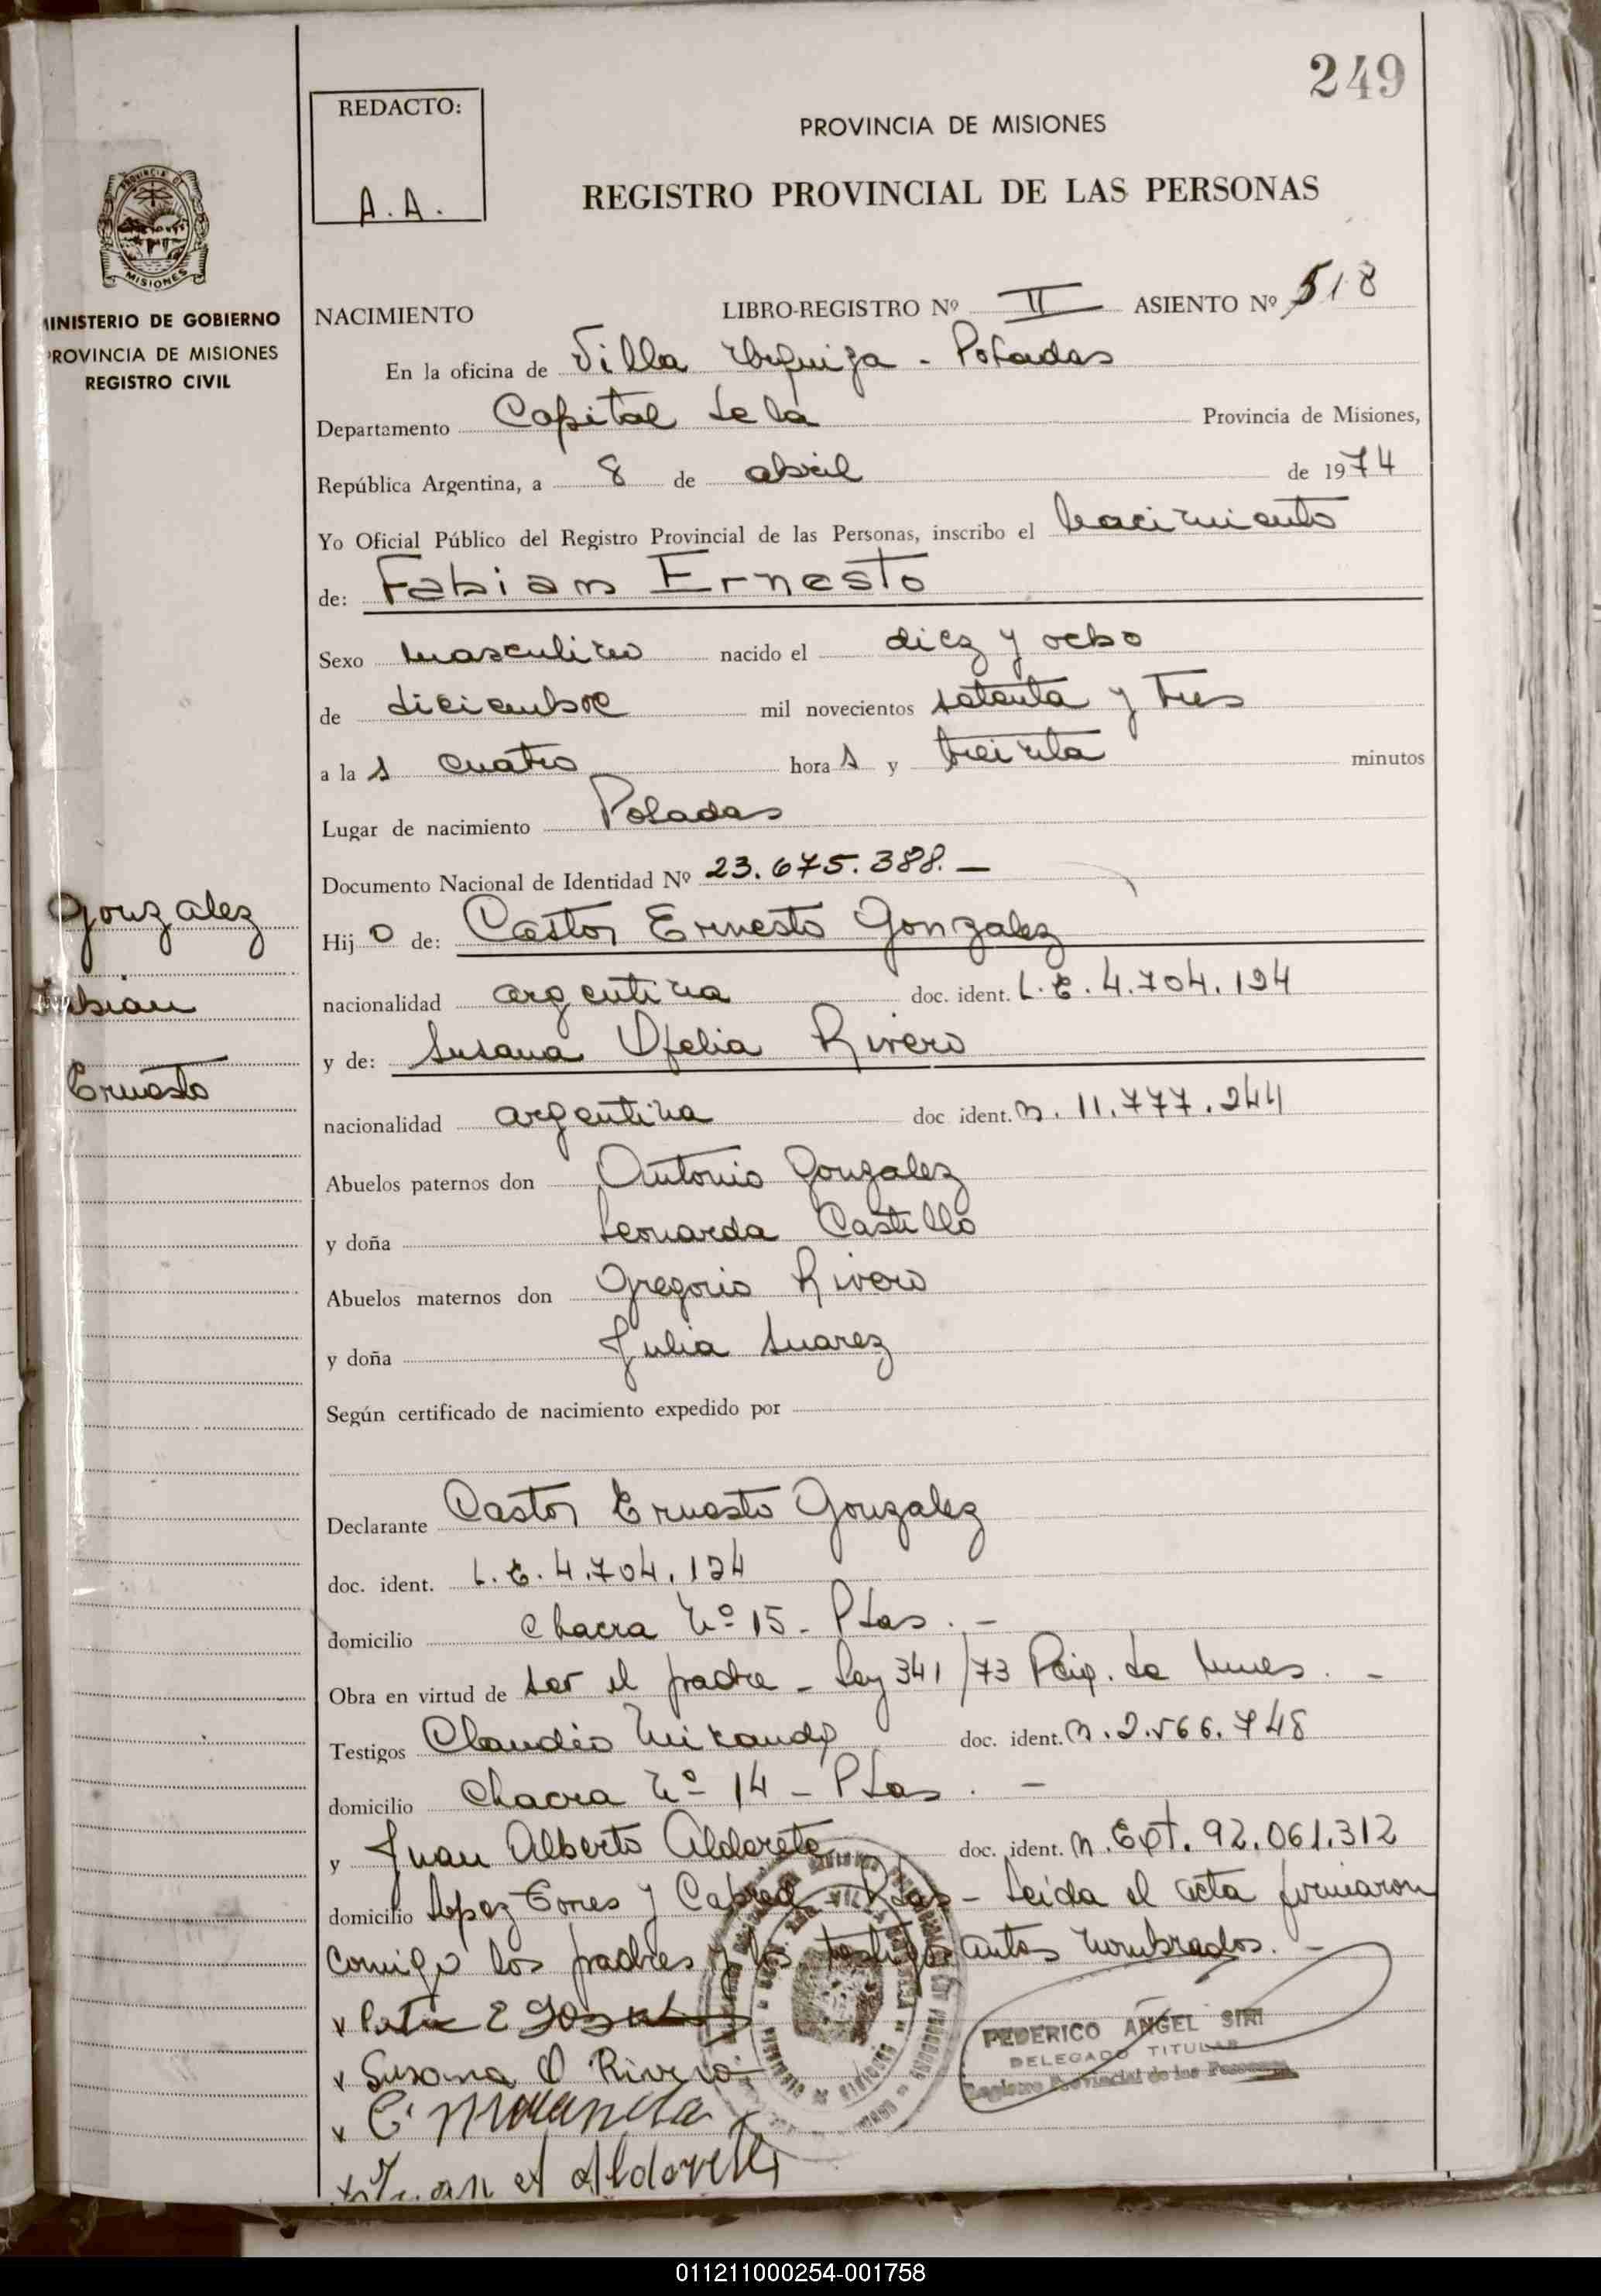 249
REDACTO:
A.A.
PROVINCIA DE MISIONES
REGISTRO PROVINCIAL DE LAS PERSONAS
PROVINCIA DE
MISIONES
MINISTERIO DE GOBIERNO
PROVINCIA DE MISIONES
REGISTRO CIVIL
NACIMIENTO LIBRO-REGISTRO Nº II ASIENTO Nº 518
En la oficina de Villa Urquiza - Posadas
Departamento Capital de la Provincia de Misiones,
República Argentina, a 8 de abril de 1974
Yo Oficial Público del Registro Provincial de las Personas, inscribo el nacimiento
de: Fabian Ernesto
Sexo masculino nacido el diez y ocho
de diciembre mil novecientos setenta y tres
a la s cuatro hora s y treinta minutos
Lugar de nacimiento Posadas
Documento Nacional de Identidad Nº 23.675.388.-
Gonzalez
Fabian
Ernesto
Hij o de: Castor Ernesto Gonzalez
nacionalidad argentina doc. ident. L.E. 4.704.194
y de: Susana Ofelia Rivero
nacionalidad argentina doc ident. M. 11.777.244
Abuelos paternos don Antonio Gonzalez
y doña Leonarda Castillo
Abuelos maternos don Gregorio Rivero
y doña Julia Suarez
Según certificado de nacimiento expedido por
Declarante Castor Ernesto Gonzalez
doc. ident. L.E. 4.704.194
domicilio Chacra Nº 15 - Pdas. -
Obra en virtud de ser el padre - Ley 341/73 de -
Testigos Claudio Miranda doc. ident. M. 2.566.748
domicilio Chacra Nº 14 - Pdas. -
y Juan Alberto Alderete doc. ident. M. Ext. 92.061.312
domicilio Lopez Torres y Cabred - Pdas - Leida el acta firmaron
comigo los padres y los testigos antes nombrados. -
x E Gonzalez
x Susana O Rivero
x C. Miranda
x Juan A Alderete
FEDERICO ANGEL SIRI
DELEGADO TITULAR
Registro Provincial de las Personas
011211000254-001758